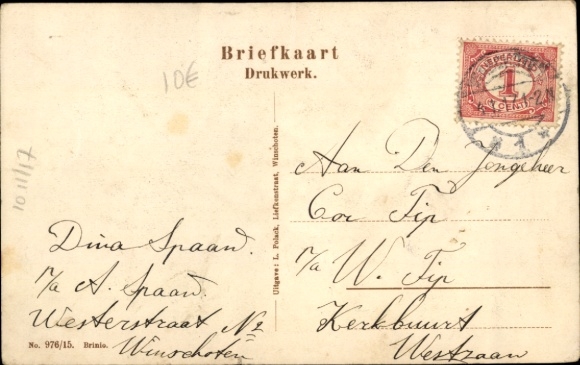 Briefkaart
Drukwerk.
10€
10/11/17
NEDERLAND
1
CENT
Uitgave: L. Polack, Liefkensstraat, Winschoten.
Aan Den Jongeheer
Cor Fip
p/a W. Fip
Kerkbuurt
Westzaan
Dina Spaan.
p/a A. Spaan.
Westerstraat No
Winschoten
No. 976/15. Brinio.